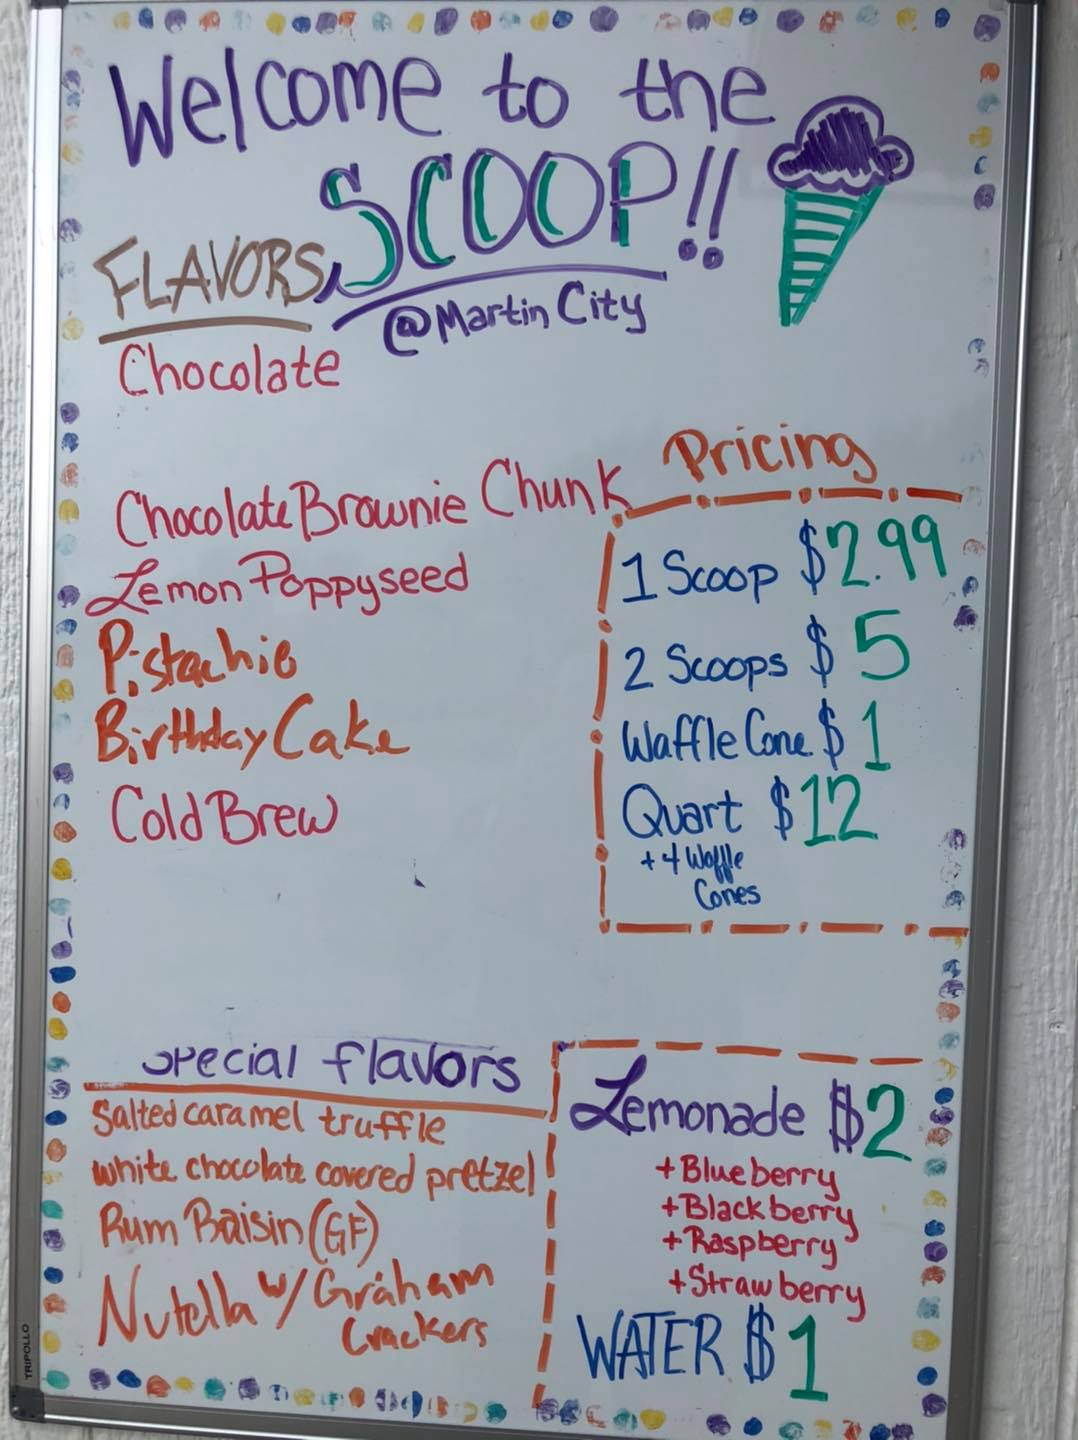 Welcome to the
SCOOP!!
@Martin City
FLAVORS
Chocolate
Chocolate Brownie Chunk
Lemon Poppyseed
Pistachio
Birthday Cake
Cold Brew
Pricing
1 Scoop $2.99
2 Scoops $5
Waffle Cone $1
Quart $12
+ 4 Waffle
Cones
Special flavors
Salted caramel truffle
white chocolate covered pretzel
Rum Raisin (GF)
Nutella w/ Graham
Crackers
Lemonade $2
+Blueberry
+Blackberry
+Raspberry
+Strawberry
WATER $1
TRIPOLLO